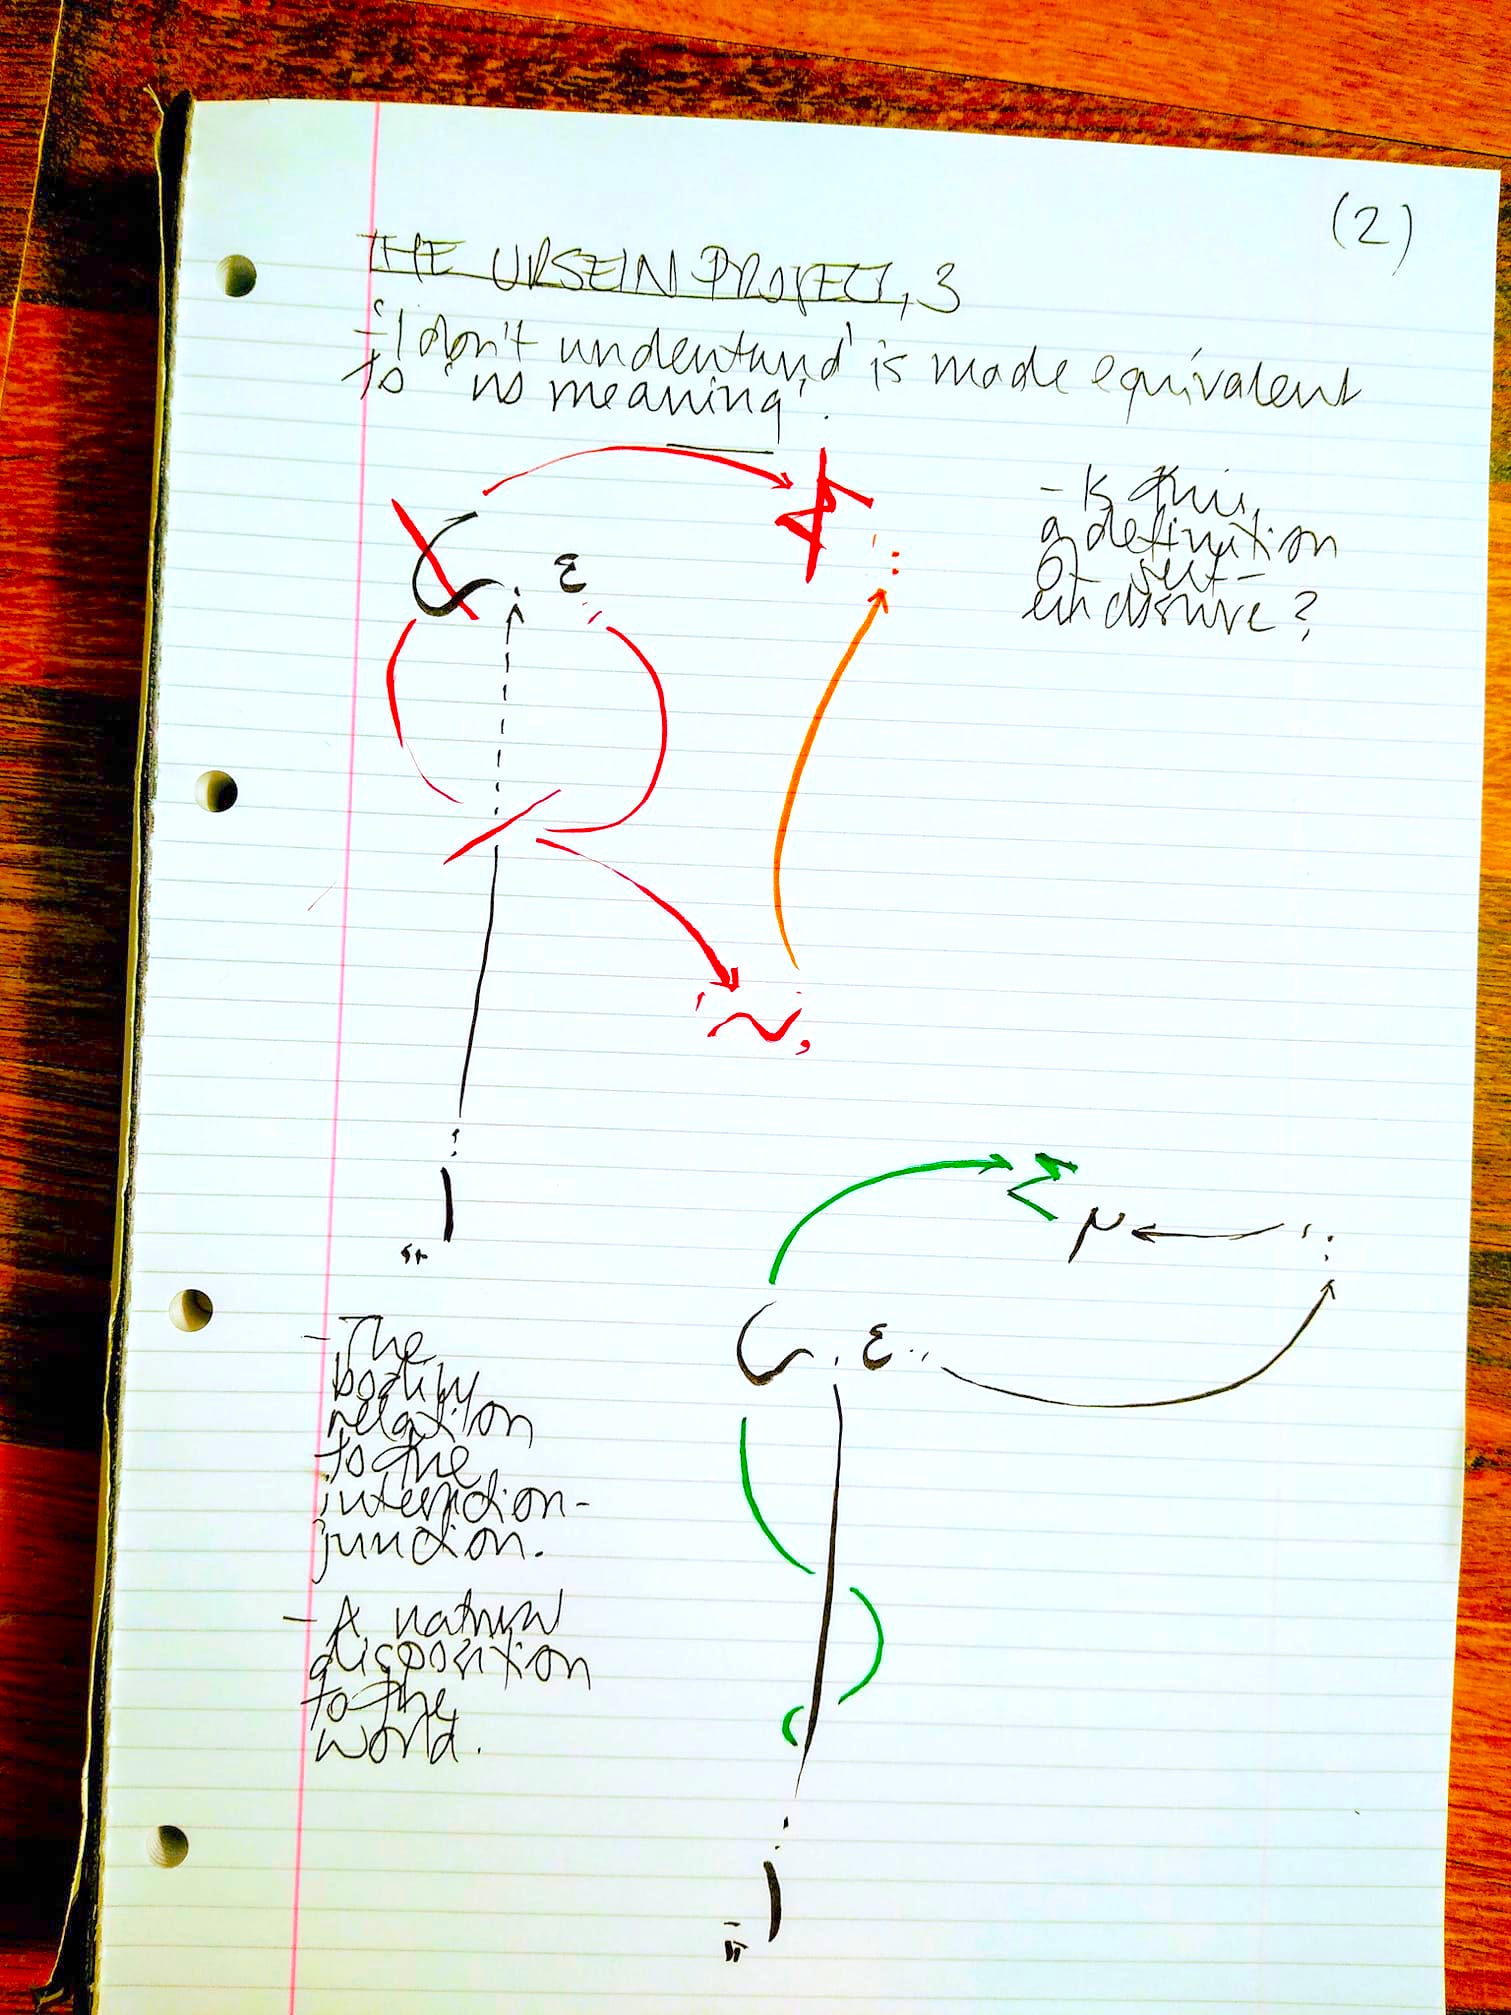 (2)
THE URSEIN PROJECT, 3
- 'I don't understand' is made equivalent
to 'no meaning'.
- Is this
a definition
of self-
enclosure?
ε
~,
Σ
μ
ε
- The
bodily
relation
to the
interdiction-
junction.
- A natural
disposition
to the
world.